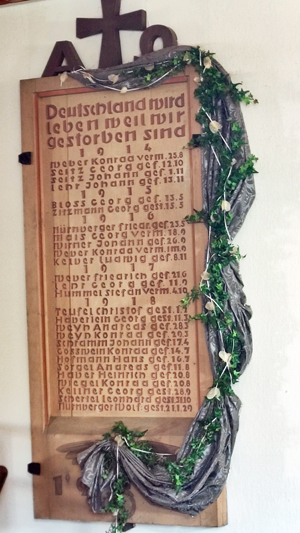 A Ω
Deutschland wird
leben weil wir
gestorben sind
1914
Weber Konrad verm. 25.8
Seitz Georg gef. 12.10
Seitz Johann gef. 3.11
Lehr Johann gef. 13.11
1915
Bloss Georg gef. 13.3
Zitzmann Georg gest. 25.5
1916
Nürnberger Friedr. gef. 23.5
Mais Georg verm. 18.9
Wirner Johann gef. 26.9
Weber Konrad verm.
Kelber Ludwig gef. 8.11
1917
Weber Friedrich gef. 21.6
Lehr Georg gef. 11.9
Hummel Stefan verm. 4.10
1918
Teufel Christof gest. 1.2
Haberlein Georg gest. 11.3
Weyh Andreas gef. 28.3
Weyh Konrad gef. 20.3
Schramm Johann gef. 17.4
Gosswein Konrad gef. 14.7
Hofmann Hans gef. 16.7
Sorgel Andreas gef. 11.8
Haber Heinrich gef. 20.8
Wiegel Konrad gef. 20.8
Kellner Georg gef. 29.8
Scherzel Leonhard gest. 31.10
Nürnberger Wolf gest. 21.1.29